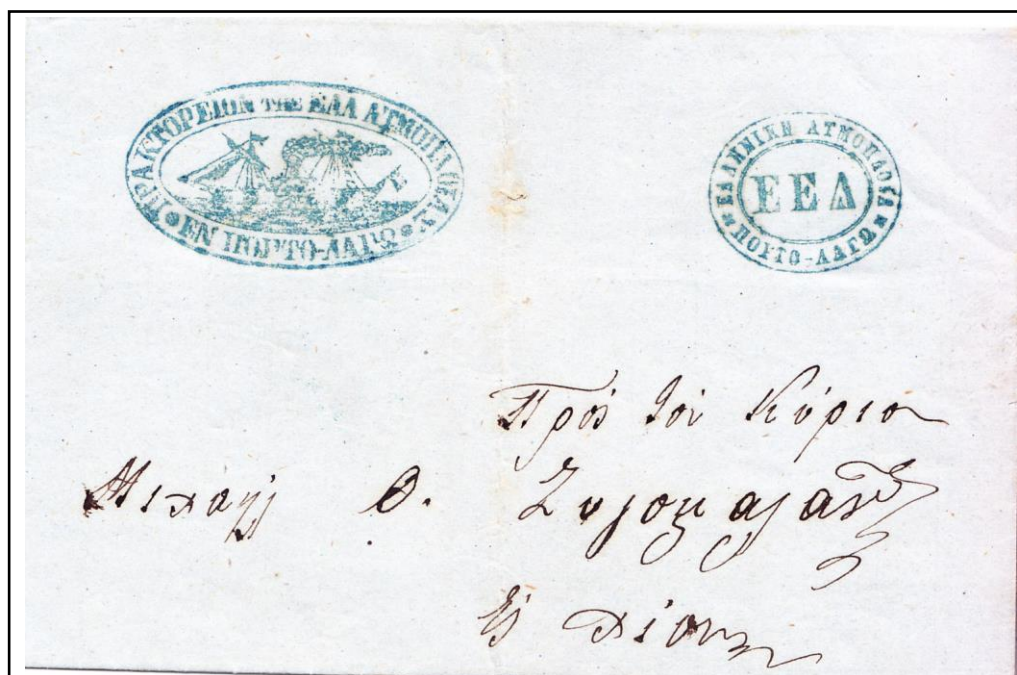 ΠΡΑΚΤΟΡΕΙΟΝ ΤΗΣ ΕΛΛ ΑΤΜΟΠΛΟΕΑΣ
ΕΝ ΠΟΡΤΟ-ΛΑΓΩ
ΕΛΛΗΝΙΚΗ ΑΤΜΟΠΛΟΙΑ
ΕΕΔ
ΠΟΡΤΟ-ΛΑΓΩ
Πρὸς τὸν Κύριον
Μιχαὴλ Θ.
εἰς Χίον